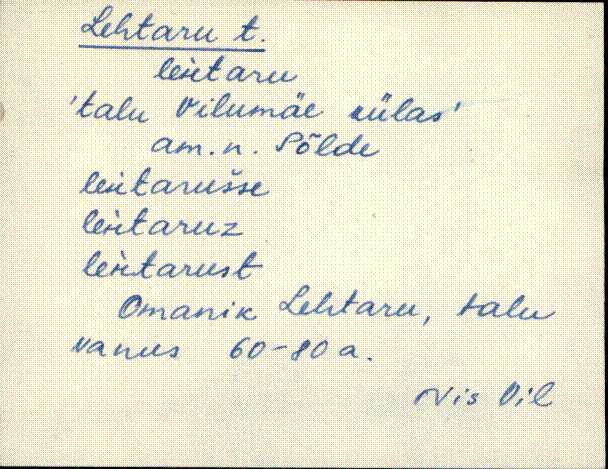 Lehtaru t.
lehtaru
'talu Vilumäe külas'
am.n. Põlde
lehtarušse
lehtaruz
lehtarust
Omanik Lehtaru, talu
vanus 60-80 a.
Vis Vil